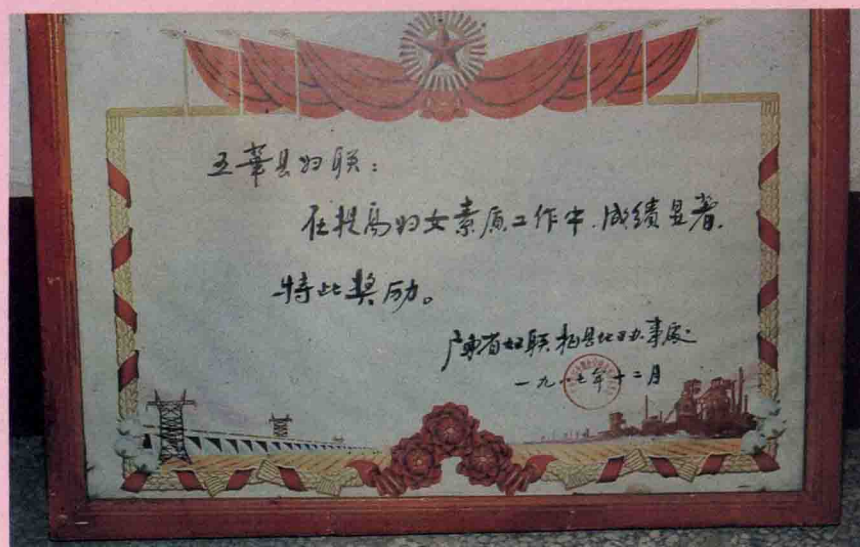 五华县妇联：
在提高妇女素质工作中.成绩显著.
特此奖励。
广东省妇联梅县地区办事处
一九八七年十二月